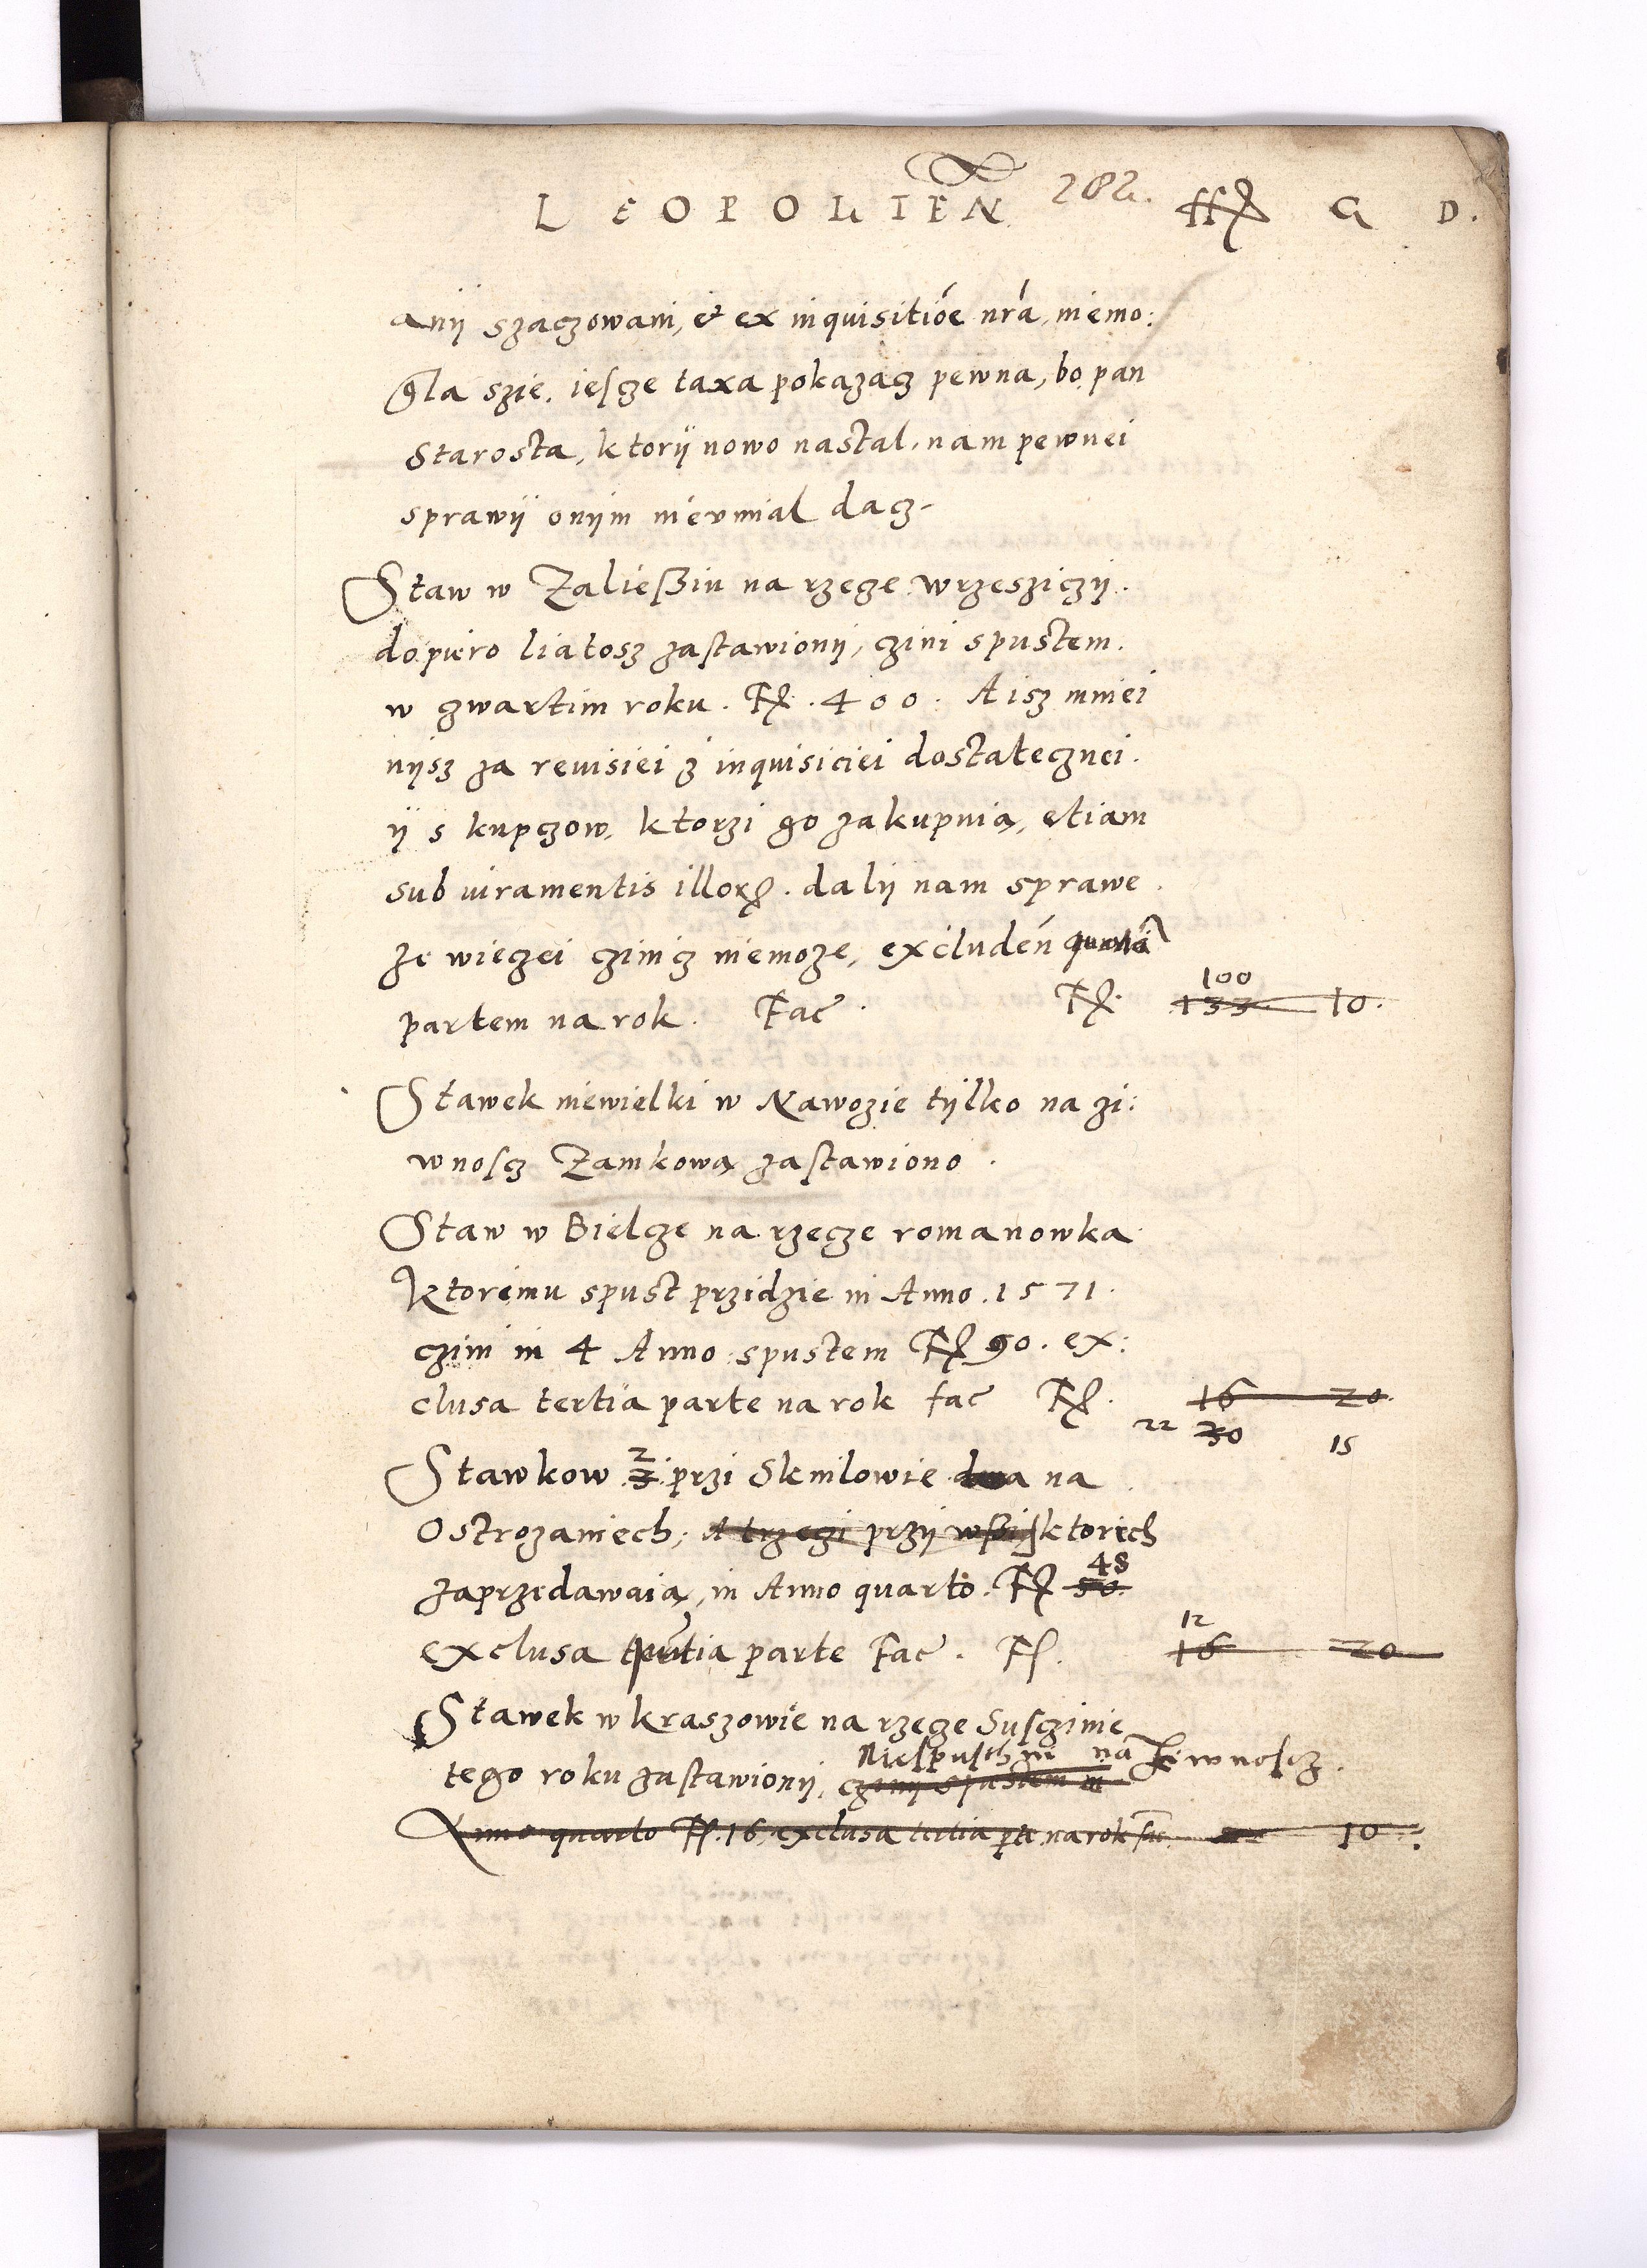 LEOPOLIEN 282. ffl G D.
anÿ szaczowani, et ex inquisitióe nrá, niemo:
gla szie. iescze taxa pokazacz pewna, bo pan
Starosta, ktorÿ nowo nastal, nam pewnei
sprawÿ onÿm nieumial dacz.
Staw w Zaließiu na rzecze wrzesziczÿ.
dopiero liatosz zastawionÿ, czini spustem.
w czwartim roku. Fl. 400. A isz mniei
nÿsz za reuisiei z inquisiciei dostatecznei.
ÿ s kupczow, ktorzi go zakupuią, etiam
sub iuramentis illorum. dalÿ nam sprawe.
ze wieczei czinicz niemoze, excluden
partem na rok. Fac. Fl. 100 133 10.
Stawek niewielki w Nawozie tÿlko na zi:
wnoscz Zamkową zastawiono.
Staw w Bielcze na rzecze romanowka
Ktoremu spust przidzie in Anno. 1571.
czini in 4 Anno spustem Fl 90. ex:
clusa tertia parte na rok fac Fl. 16 20.
22 30 15
Stawkow 2 3. przi Sknilowie dwa na
Ostrozaniech, A trzeci przÿ ktorich
zaprzedawaią, in Anno quarto. Fl 48 50.
exclusa parte Fac. Fl. 12 16 20
Stawek w kraszowie na rzecze Susczinie
Niespusthni na Zewnoscz.
tego roku zastawionÿ, czinÿ spustem in
Anno quarto Fl. 16, exclusa tertia pte. na rok fac. 10.